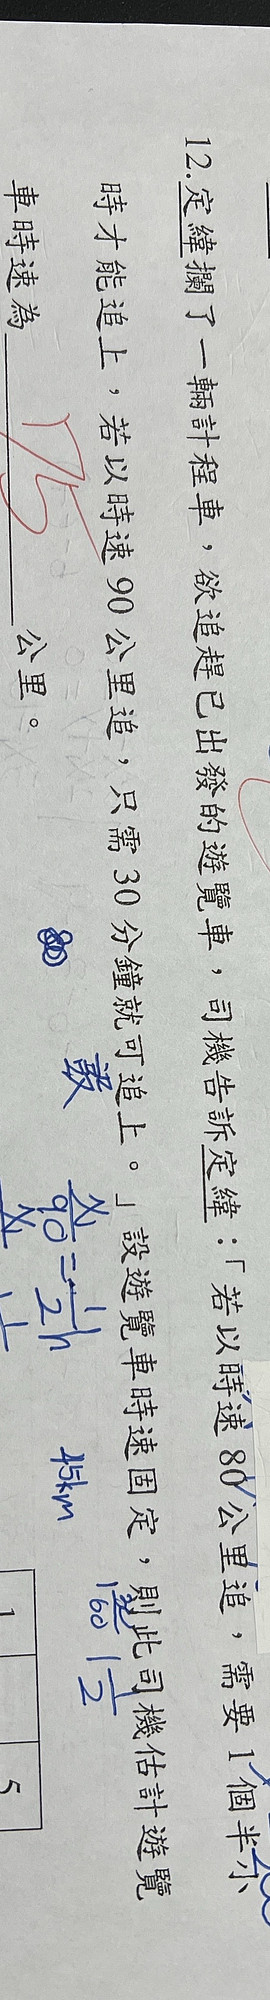 12.定緯攔了一輛計程車，欲追趕已出發的遊覽車，司機告訴定緯：「若以時速80公里追，需要1個半小
時才能追上，若以時速90公里追，只需30分鐘就可追上。」設遊覽車時速固定，則此司機估計遊覽
車時速為 75 公里。
設
x/90 = 1/2 h
45km
1 1/2
1 5